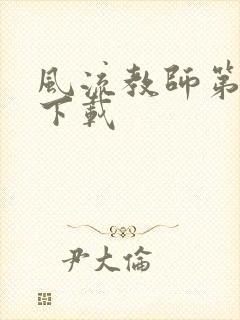 風流教師第
下載
尹大倫